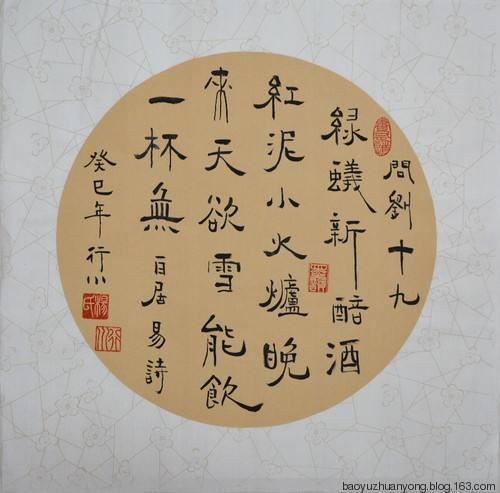 問劉十九
綠蟻新醅酒
紅泥小火爐晚
來天欲雪能飲
一杯無
白居易詩
癸巳年行川
baoyuzhuanyong.blog.163.com